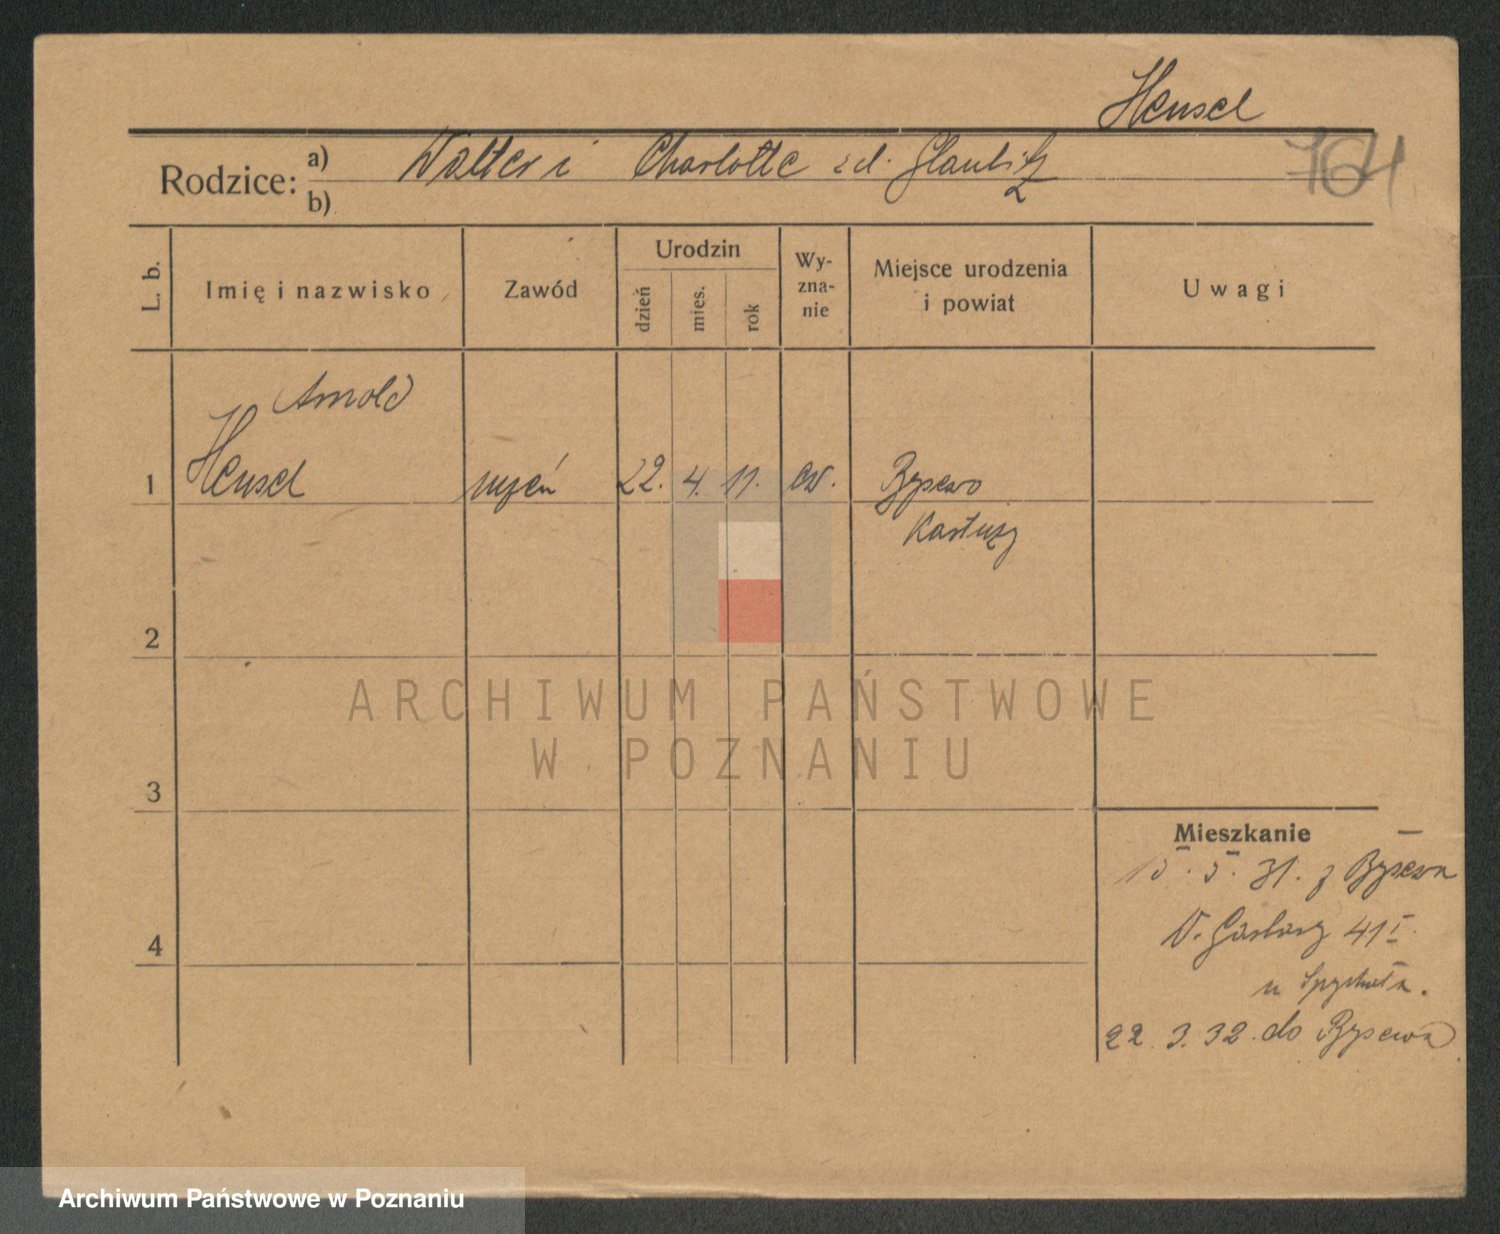 Hensel
Rodzice: a) Walter i Charlotte z d. Glaubitz
b)
764
L. b.
Imię i nazwisko
Zawód
Urodzin
dzień
mies.
rok
Wy-
zna-
nie
Miejsce urodzenia
i powiat
Uwagi
Arnold
1 Hensel uczeń 22. 4. 11. ew. Bysewo
Kartuzy
2
3
4
Mieszkanie
15. 5. 31. z Bysewa
W. Garbary 41 I.
u Spychała.
22. 3. 32. do Bysewa
ARCHIWUM PAŃSTWOWE
W POZNANIU
Archiwum Państwowe w Poznaniu